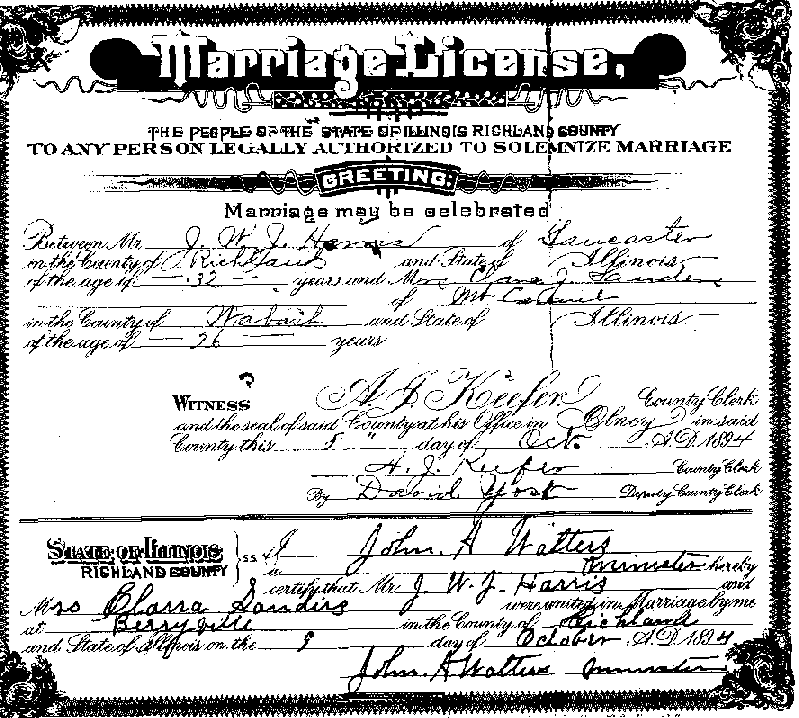 Marriage License.
THE PEOPLE OF THE STATE OF ILLINOIS RICHLAND COUNTY
TO ANY PERSON LEGALLY AUTHORIZED TO SOLEMNIZE MARRIAGE
GREETING:
Marriage may be celebrated
Between Mr J. W. J. Harris of Lancaster
in the County of Richland and State of Illinois
of the age of 32 years and M Clara J. Sanders
of Mt Carmel
in the County of Wabash and State of Illinois
of the age of 26 years
WITNESS A J Keefer County Clerk
and the seal of said County at his Office in Olney in said
County this 5" day of Oct. A.D. 1894
A. J. Keefer County Clerk
By David Yost Deputy County Clerk
STATE OF ILLINOIS } ss. I John A Walters
RICHLAND COUNTY a minister hereby
certify that Mr J. W. J. Harris and
Mrs Clarra Sanders were united in Marriage by me
at Berryville in the County of Richland
and State of Illinois on the 9 day of October A.D. 1894
John A Walters minister